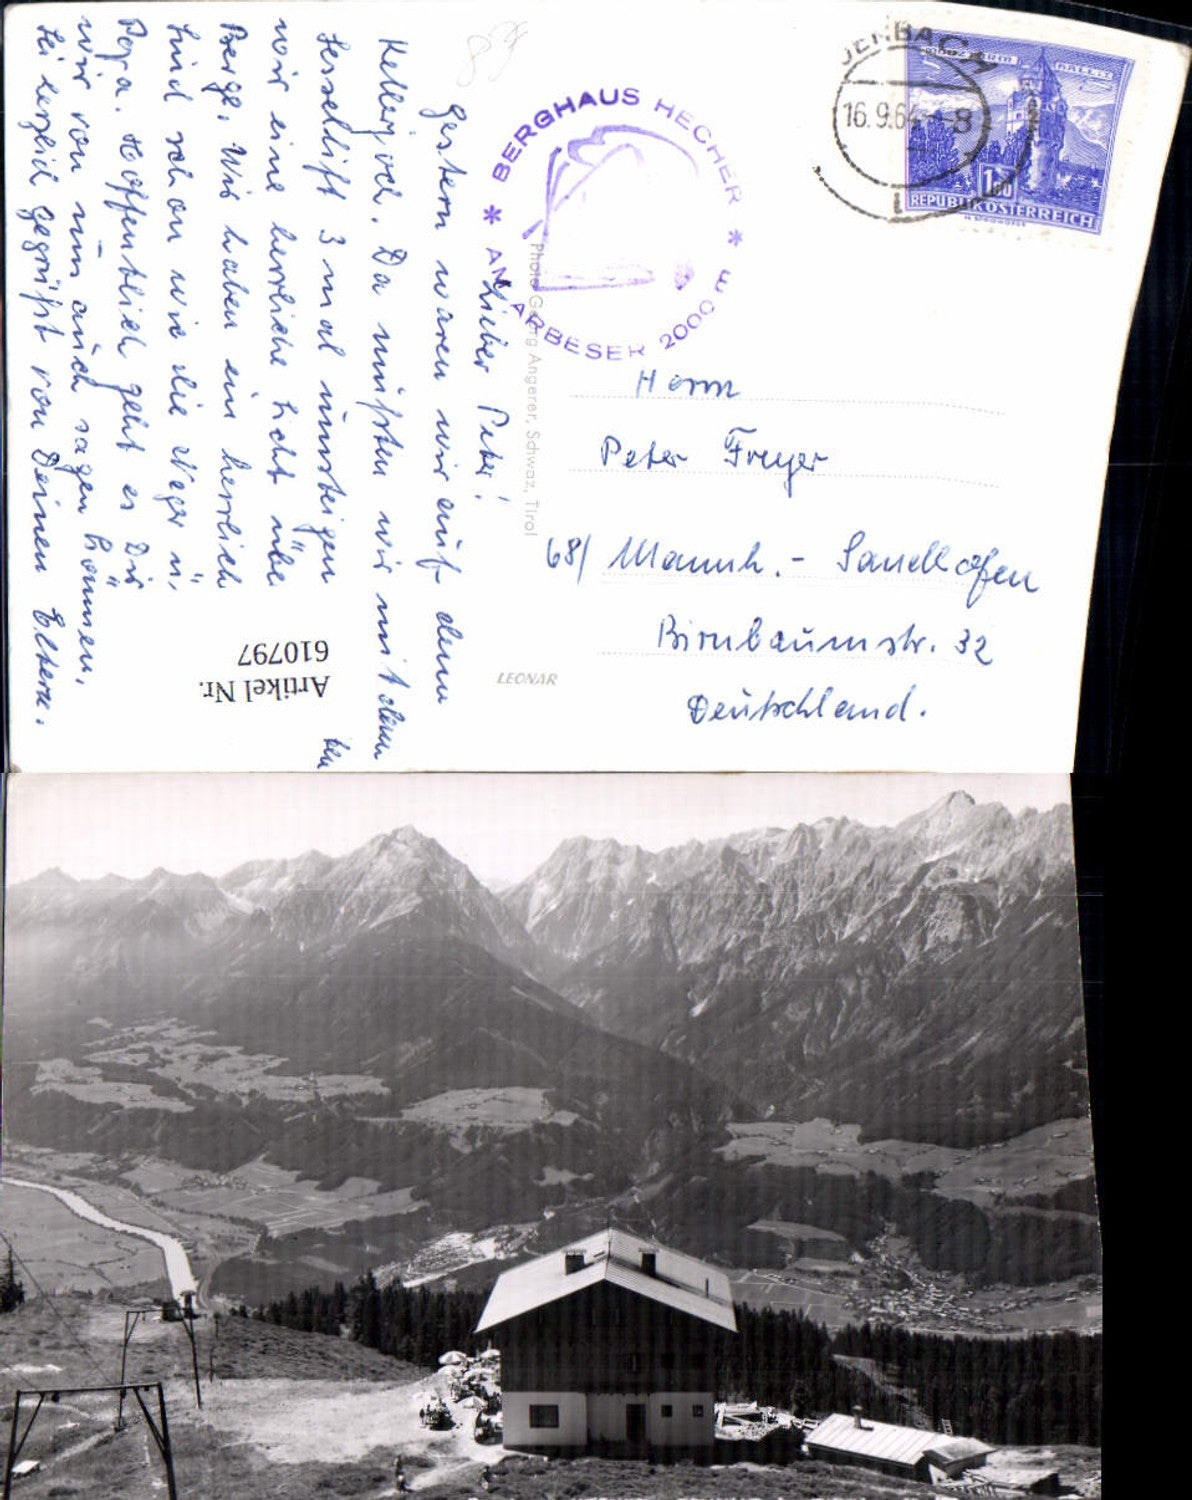 Lieber Peter!
Gestern waren wir auf dem
Kellerjoch. Da mußten wir mit dem
Sessellift 3 mal umsteigen
wir eine herrliche Sicht über
Berge. Wir haben ein herrlich
sind schon wie die Neger u.
Popa. Hoffentlich geht es Dir
wir von uns auch sagen können.
Sei herzlich gegrüßt von Deinen Eltern.
Artikel Nr.
610797
Photo Georg Angerer, Schwaz, Tirol
LEONAR
* BERGHAUS HECHER *
AM ARBESER 2000
JENBACH
16.9.64 -8
REPUBLIK ÖSTERREICH
Herrn
Peter Freyer
68/ Mannh.- Sandhofen
Birnbaumstr. 32
Deutschland.